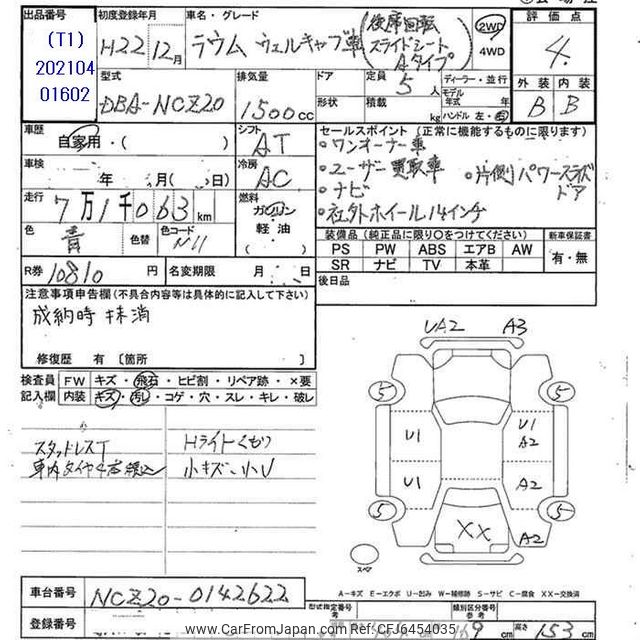 出品番号
(T1)
202104
01602
初度登録年月
H22 12月
車名・グレード
ラウム ウェルキャブ車
(後席回転
スライドシート
Aタイプ)
2WD
4WD
評価点
4.
型式
DBA-NCZ20
排気量
1500cc
ドア
形状
定員
5人
積載
kg
ディーラー・並行
モデル
年式
年
ハンドル 左・右
外装 内装
B B
車歴
自家用・( )
シフト
AT
セールスポイント (正常に機能するものに限ります)
・ワンオーナー車
・ユーザー買取車
・ナビ
・社外ホイール14インチ
・片側パワースライドドア
車検
年 月( 日)
冷房
AC
走行
7万1千063km
燃料
ガソリン
軽油
( )
色
青
色替
色コード
装備品 (純正品に限り○をつけてください)
PS PW ABS エアB AW
SR ナビ TV 本革
新車保証書
有・無
R券 10810円
名変期限 月 日
後日品
注意事項申告欄 (不具合内容等は具体的に記入して下さい)
成約時 抹消
修復歴 有 〔箇所 〕
検査員
記入欄
FW キズ・飛石・ヒビ割・リペア跡・×要
内装 キズ・汚レ・コゲ・穴・スレ・キレ・破レ
スタッドレスT
車内タイヤ4本積込
Hライトくもり
小キズ・小U
UA2 A3
5 5
U1 U1
A2
U1 A2
5 5
XX
A2
スペア
A-キズ E-エクボ U-凹み W-補修跡 S-サビ C-腐食 XX-交換済
車台番号
NCZ20-0142622
登録番号
型式指定番号
類別区分番号
高さ 153cm
www.CarFromJapan.com Ref:CFJ6454035